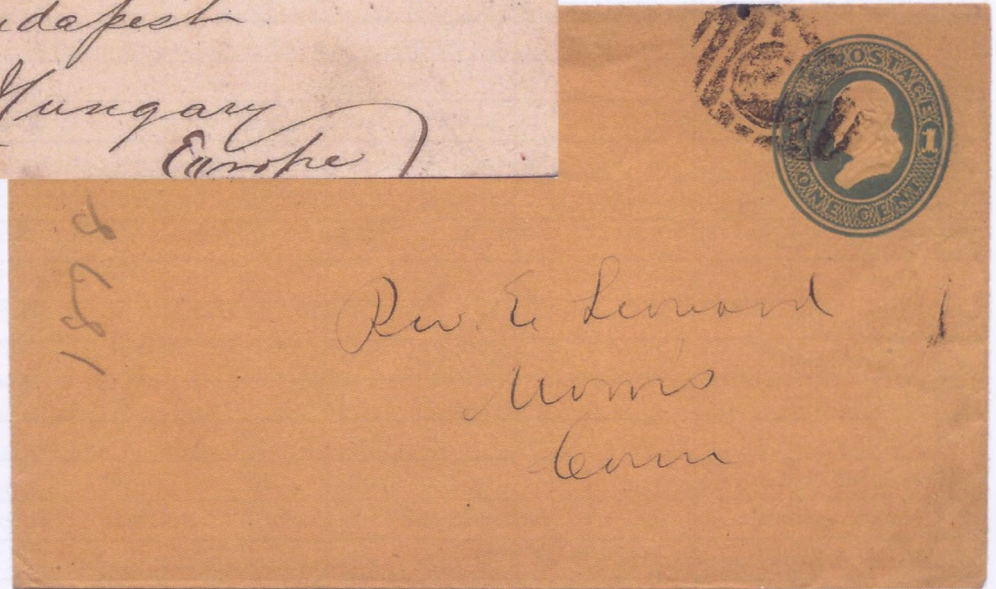 udapest
Hungary
Europe
U.S. POSTAGE
1
ONE CENT
1898
Rev E Leonard
Morris
Conn